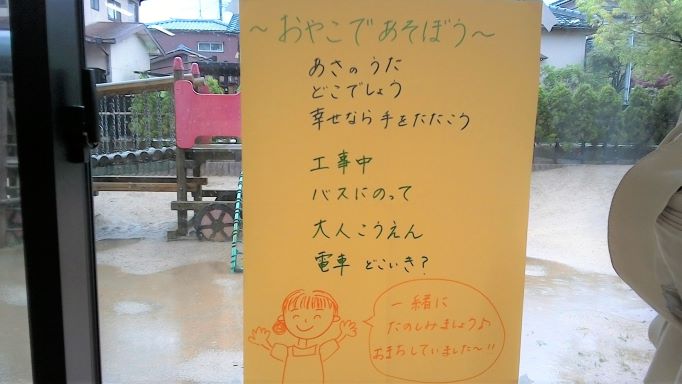 ～おやこであそぼう～
あさのうた
どこでしょう
幸せなら手をたたこう
工事中
バスにのって
大人こうえん
電車 どこいき?
一緒に
たのしみましょう♪
おまちしていました～!!